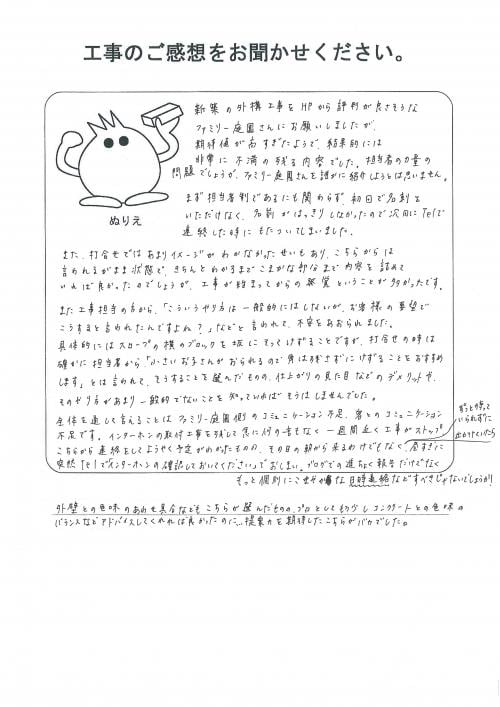 工事のご感想をお聞かせください。
ぬりえ
新築の外構工事をHPから評判が良さそうな
ファミリー庭園さんにお願いしましたが、
期待値が高すぎたようで、結果的には
非常に不満の残る内容でした。担当者の力量の
問題でしょうが、ファミリー庭園さんを誰かに紹介しようとは思いません。
まず担当者制であるにも関わらず、初回で名刺を
いただけなく、名前がはっきりしなかったので次回にTelで
連絡した時にもたついてしまいました。
また、打合せではあまりイメージがわかなかったせいもあり、こちらからは
言われるがまま状態で、きちんとわかるまでこまかな部分まで内容を詰めて
いれば良かったのでしょうが、工事が始まってからの発覚ということが多かったです。
また工事担当の方から、「こういうやり方は一般的にはしないが、お客様の要望で
こうすると言われたんですよね?」などと言われて、不安をあおられました。
具体的にはスロープの横のブロックを坂にそってけずることですが、打合せの時は
確かに担当者から「小さいお子さんがおられるので角は残さずにけずることをおすすめ
します」とは言われて、そうすることを選んだものの、仕上がりの見た目などのデメリットや、
そのやり方があまり一般的でないことを知っていればそうはしませんでした。
全体を通して言えることはファミリー庭園側のコミュニケーション不足、客とのコミュニケーション
不足です。インターホンの取付工事を残して急に何の音もなく一週間近く工事がストップ。
こちらから連絡をしてようやく予定がわかったものの、その日の朝から来るわけでもなく、昼すぎに
突然Telで「インターホンの確認しておいてください。」でおしまい。ブログでの進ちょく報告だけでなく
もっと個別にこまやかな日時連絡などすべきじゃないでしょうか!
ずっと待って
いられずに
出かけていたら
外壁との色味のあわせ具合なども、こちらが選んだものの、プロとしてもう少しコンクリートとの色味の
バランスなどアドバイスしてくれれば良かったのに…提案力を期待したこちらがバカでした。